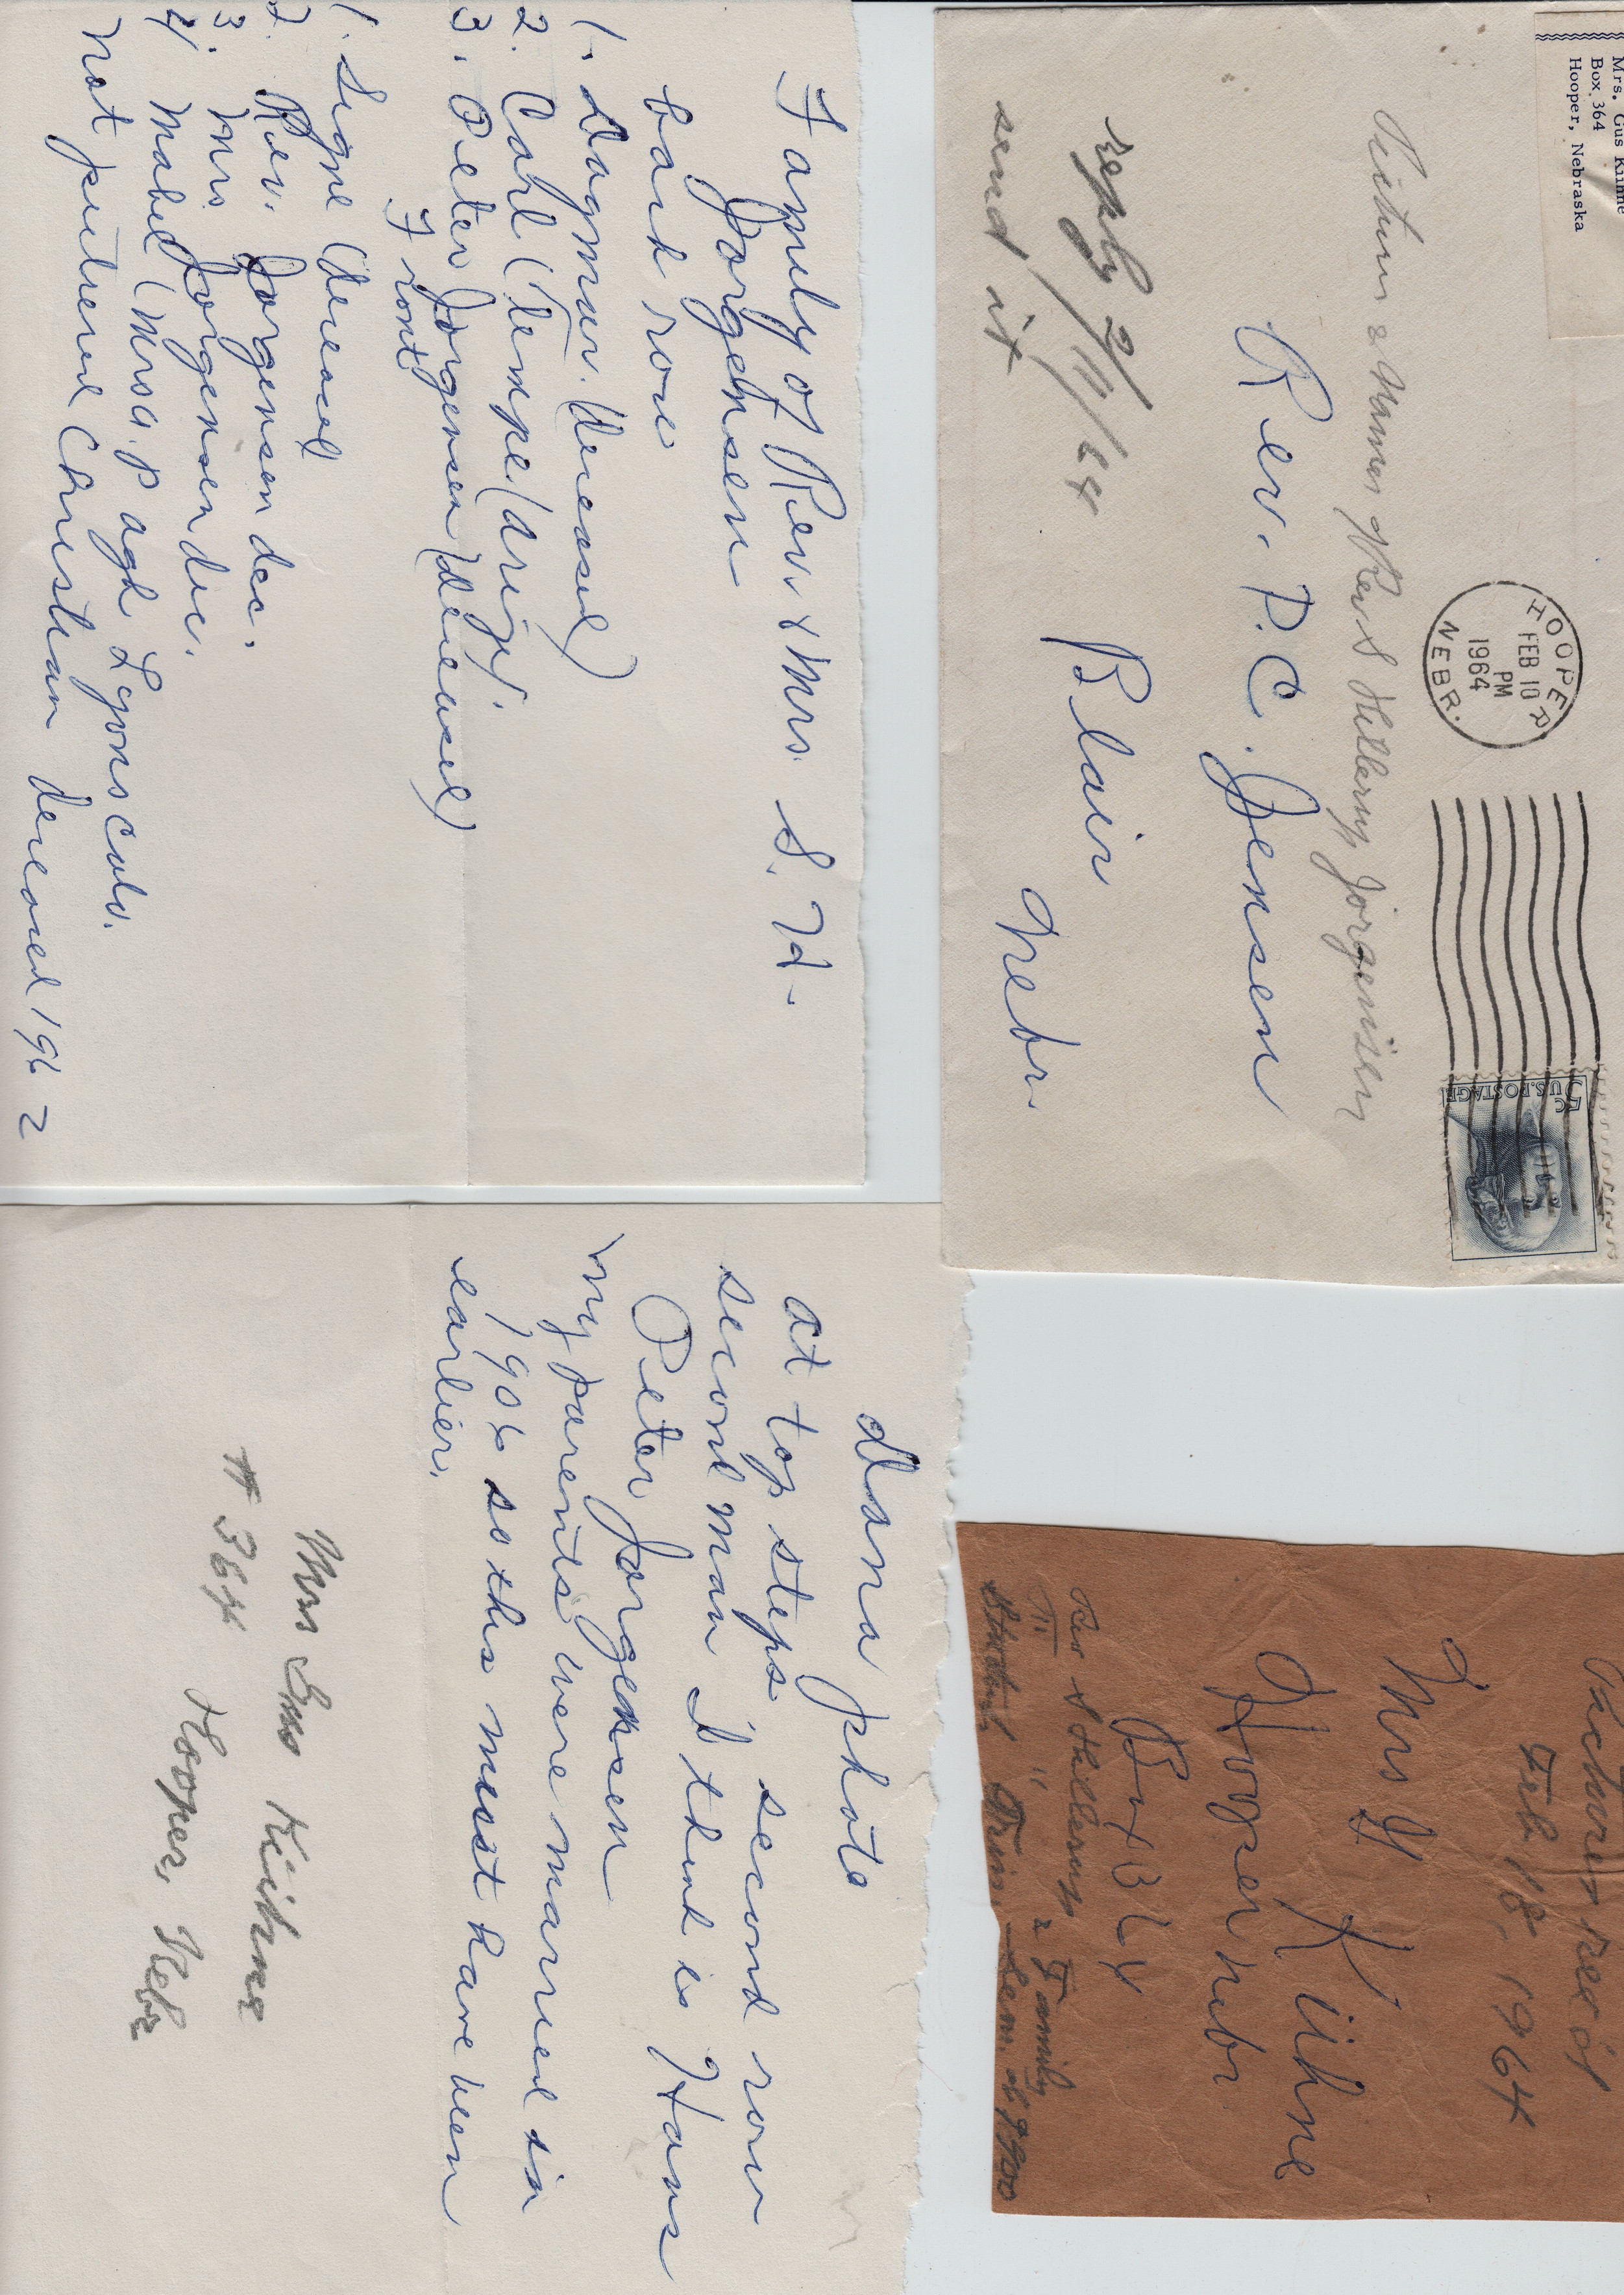 Mrs. Gus Kühne
Box 364
Hooper, Nebraska
HOOPER
FEB 10
PM
1964
NEBR.
5c
U.S. POSTAGE
Picture & Names of Rev S Hillerup Jorgensen
Rev. P. C. Jensen
Blair
Nebr.
reply 2/11/64
send it
Family of Rev. & Mrs. S. H.
Jorgensen
back row
1. Dagmar. (deceased)
2. Carl (Tempe (Ariz).
3. Peter Jorgensen (deceased)
Front
1. Signe (deceased
2. Rev. Jorgensen dec.
3. Mrs Jorgensen dec.
4. Mabel (Mrs G. P agh Lyons Colo.
not pictured Christian deceased 1962
Pictures rec'd
Feb 18, 1964
Mrs G Kühne
Hooper Nebr
Box 364
Rev S Hillerup & Family
Dana photo
at top steps second row
second man I think is Hans
Peter Jorgensen
my parents were married in
1906 so this must have been
earlier.
Mrs Gus Kühne
# 364
Hooper, Nebr